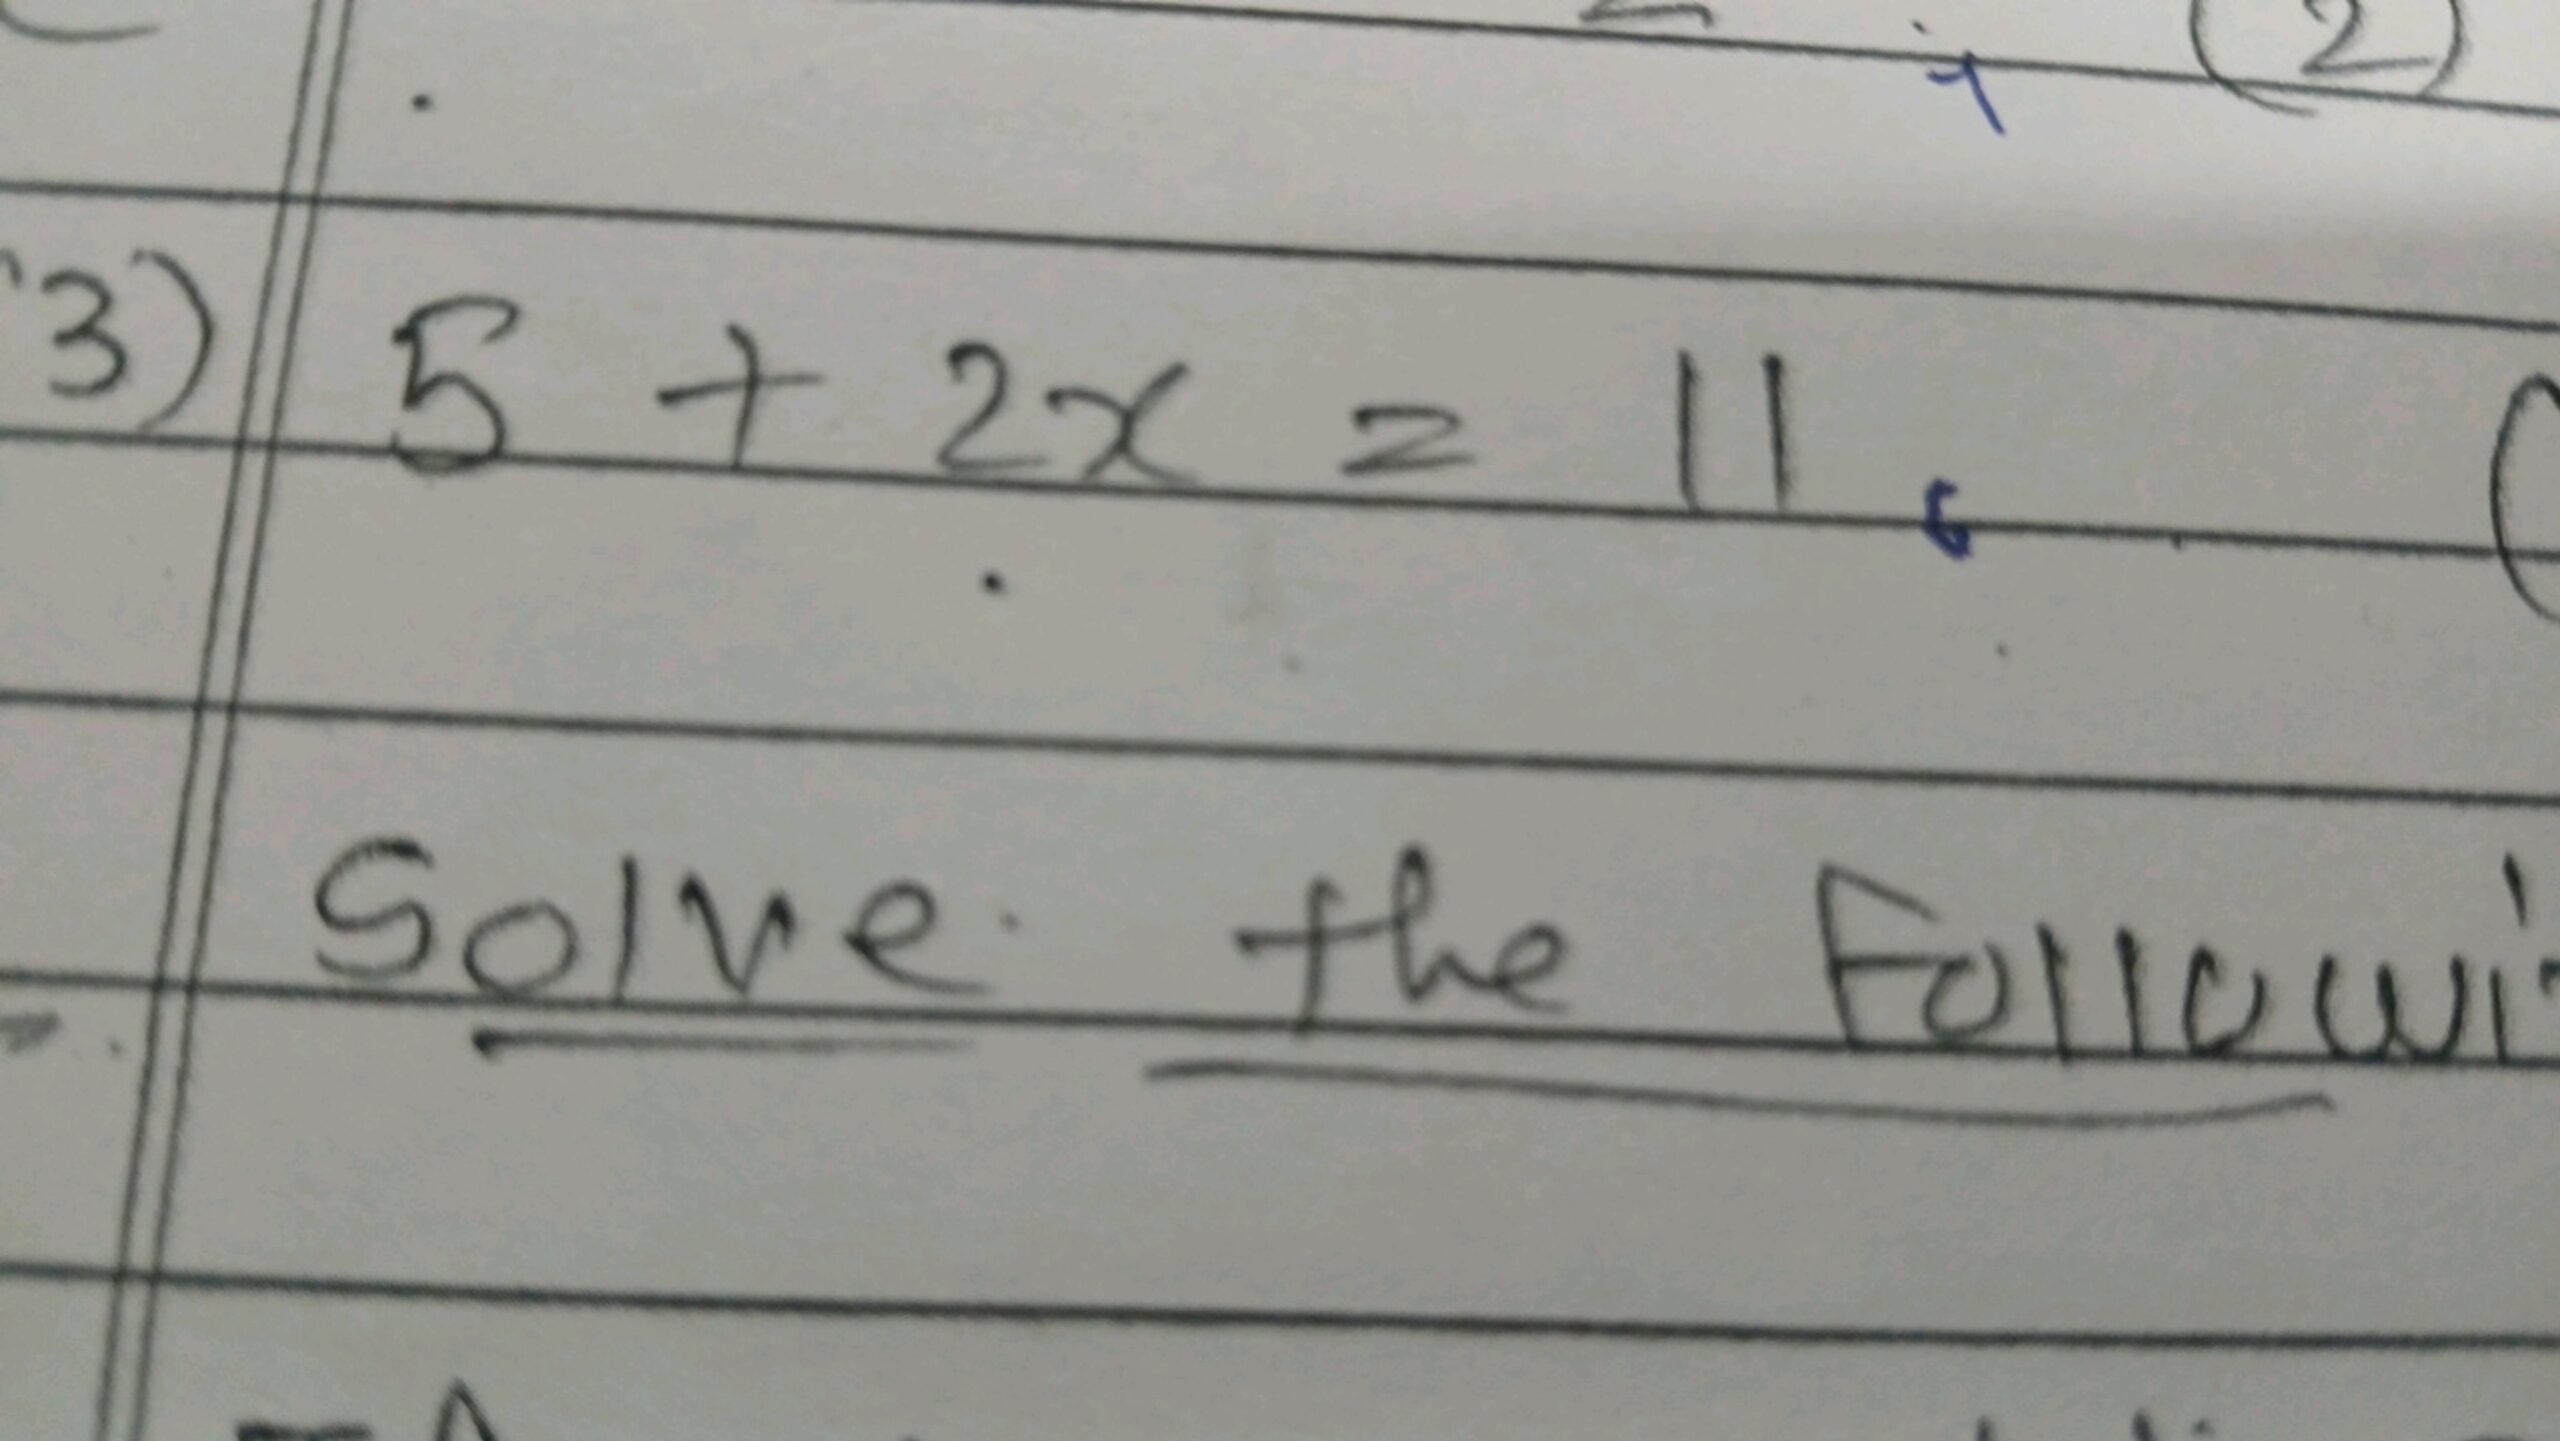 (2)
3) 5 + 2x = 11.
Solve the Followi